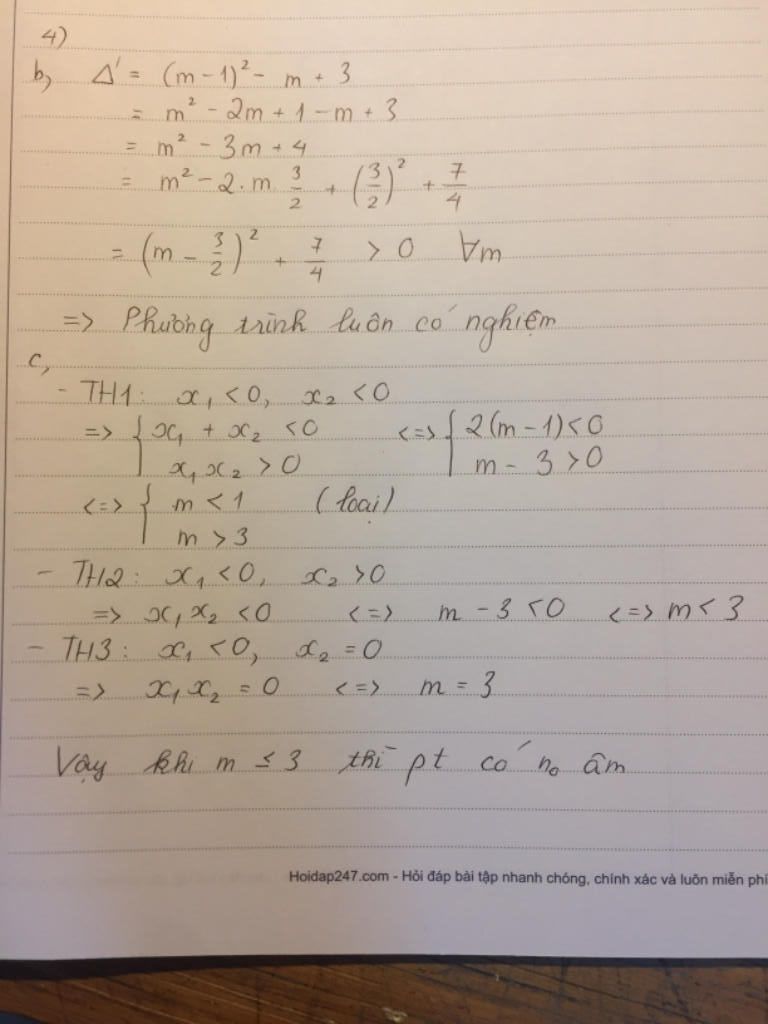 4)
b, Δ' = (m - 1)² - m + 3
= m² - 2m + 1 - m + 3
= m² - 3m + 4
= m² - 2.m 3/2 + (3/2)² + 7/4
= (m - 3/2)² + 7/4 > 0 ∀m
=> Phương trình luôn có nghiệm
c,
- TH1: x₁ < 0, x₂ < 0
=> { x₁ + x₂ < 0 <=> { 2(m - 1) < 0
x₁x₂ > 0 m - 3 > 0
<=> { m < 1 (loại)
m > 3
- TH2: x₁ < 0, x₂ > 0
=> x₁x₂ < 0 <=> m - 3 < 0 <=> m < 3
- TH3: x₁ < 0, x₂ = 0
=> x₁x₂ = 0 <=> m = 3
Vậy khi m ≤ 3 thì pt có n₀ âm
Hoidap247.com - Hỏi đáp bài tập nhanh chóng, chính xác và luôn miễn phí